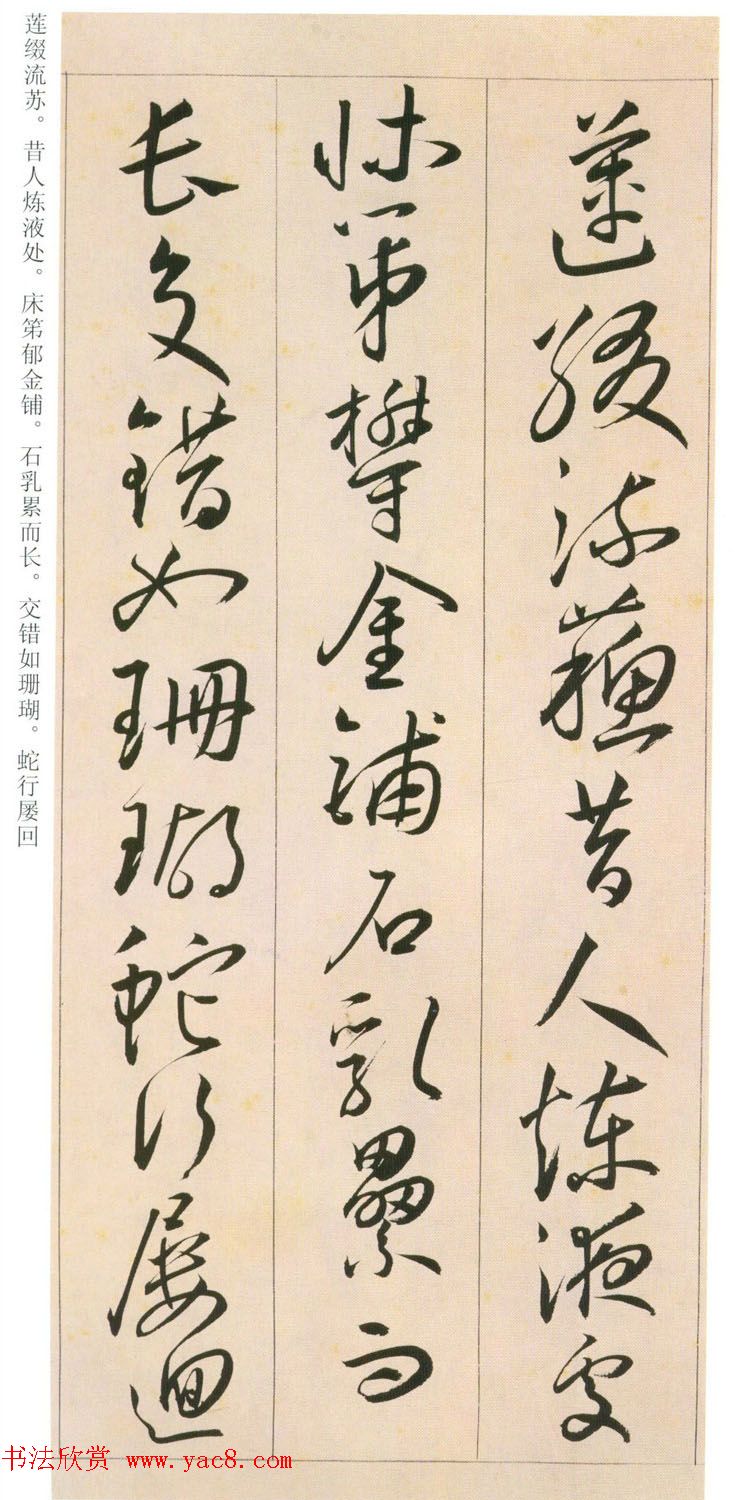 蓮綴流蘇昔人煉液處
牀笫鬱金鋪石乳纍而
長交錯如珊瑚蛇行屢迴
莲缀流苏。昔人炼液处。床笫郁金铺。石乳累而长。交错如珊瑚。蛇行屡回
书法欣赏 www.yac8.com